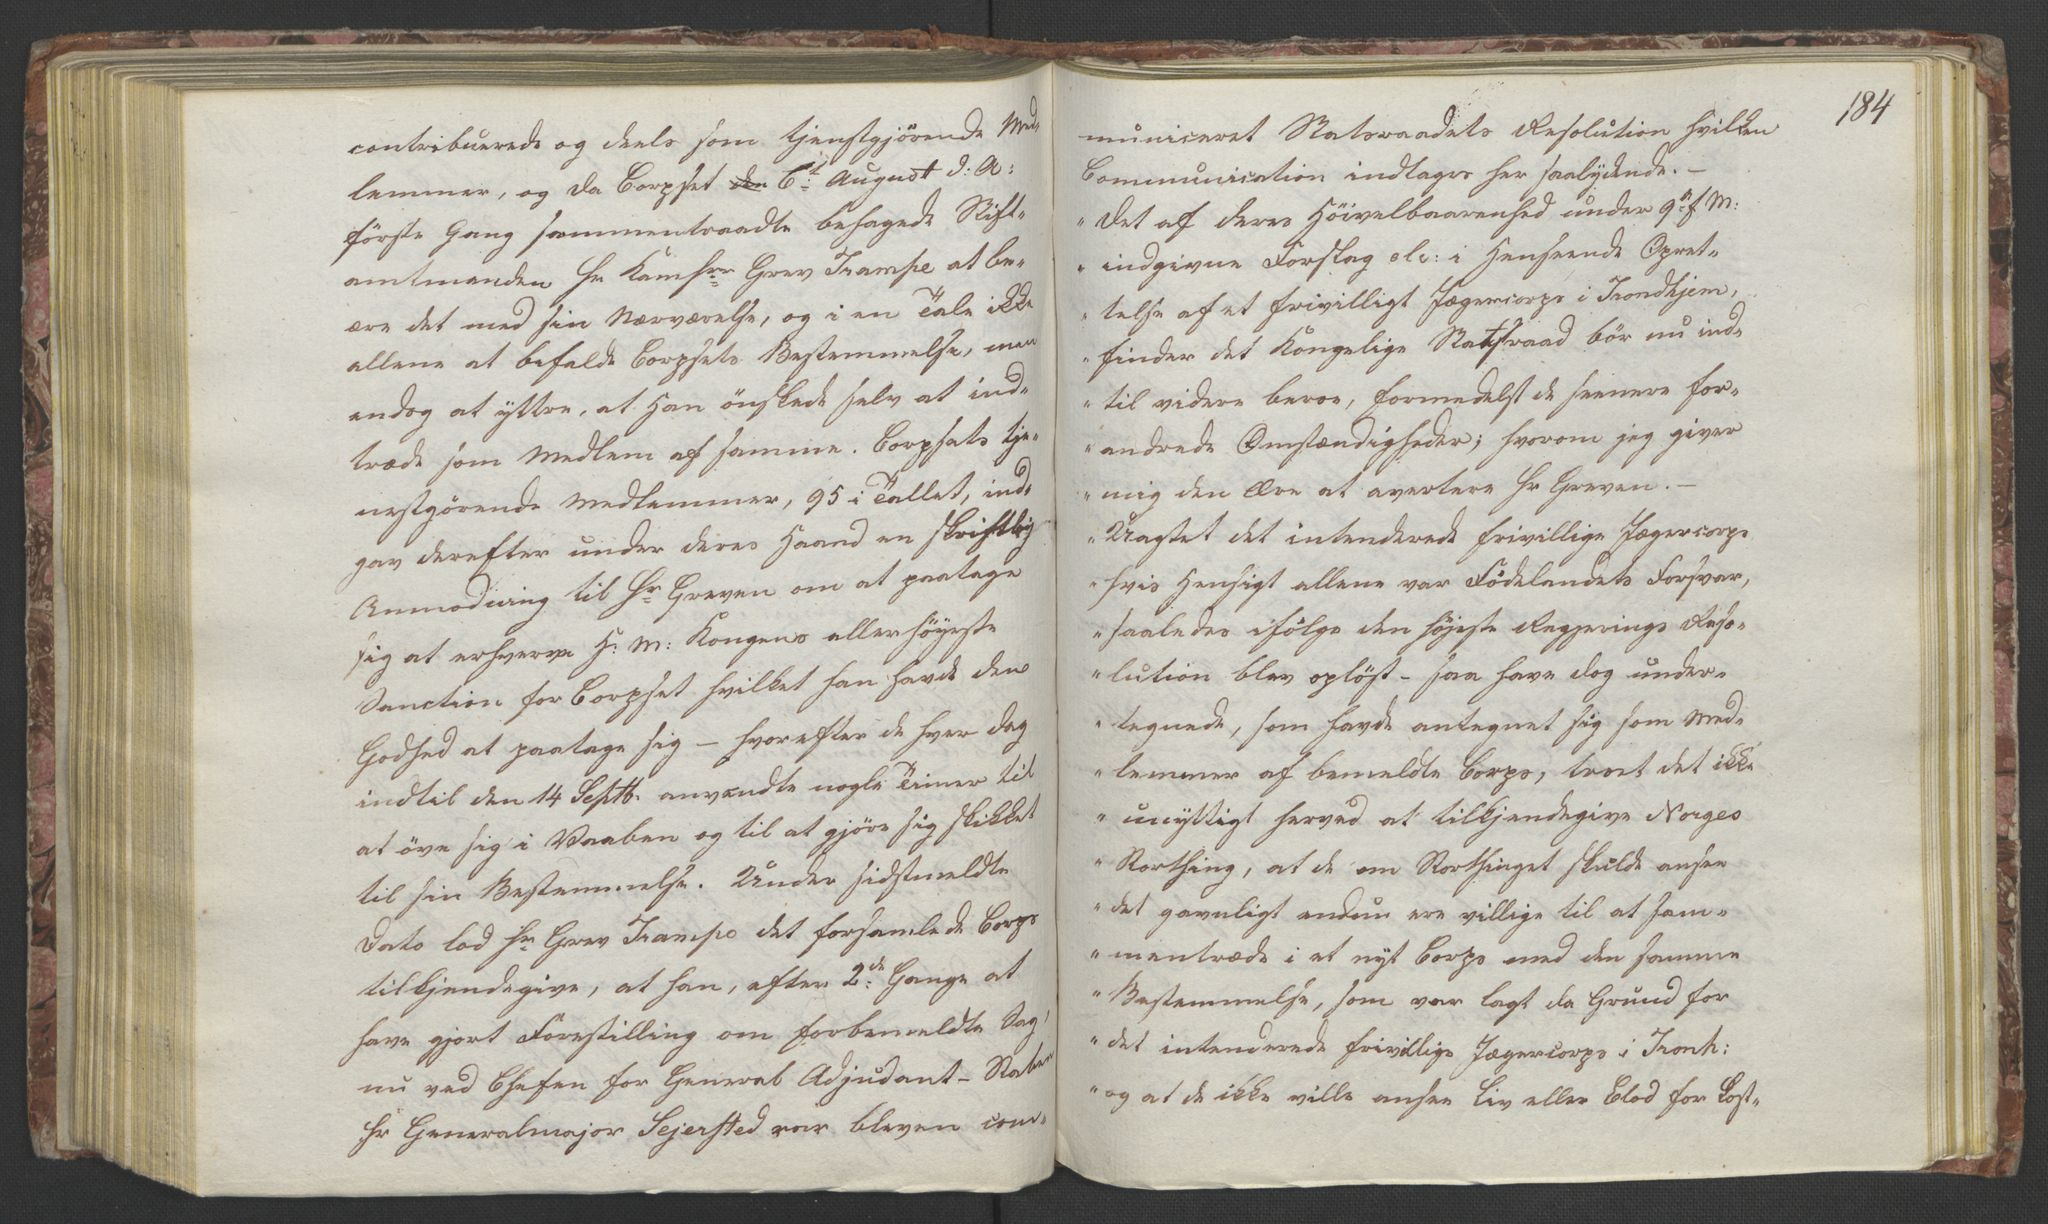 contribuerede og deels som tjenstgjörende Med-
lemmer, og da Corpset den 6te August d: A:
förste Gang sammentraadte behagede Stift-
amtmanden Hr Kamhrr Grev Trampe at be-
ære det med sin Nærværelse, og i en Tale ikke
allene at befalde Corpsets Bestemmelse, men
endog at yttre, at Han önskede selv at ind-
træde som Medlem af samme. Corpsets tje-
nestgörende Medlemmer, 95 i Tallet, ind-
gav derefter under deres Haand en skriftlig
Anmodning til Hr Greven om at paatage
sig at erhverve H: M: Kongens allerhöyeste
Sanction for Corpset hvilket han havde den
Godhed at paatage sig – hvorefter de hver dag
indtil den 14 Septb. anvendte nogle Timer til
at öve sig i Vaaben og til at gjöre sig skikket
til sin Bestemmelse. Under sidstmeldte
Dato lod Hr Grev Trampe det forsamlede Corps
tilkjendegive, at han, efter 2de Gange at
have gjort Forestilling om forbemeldte Sag,
nu ved Chefen for General Adjudant-Staben
Hr Generalmajor Sejersted var bleven com-
184
municeret Statsraadets Resolution hvilken
Communication indtages her saalydende. –
" Det af deres Höivelbaarenhed under 9de f M:
" indgivne Forslag etc: i Henseende Opret-
" telse af et frivilligt Jægercorps i Trondhjem,
" finder det Kongelige Statsraad bör nu ind-
" til videre beroe, formedelst de seenere for-
" andrede Omstændigheder; hvorom jeg giver
" mig den Ære at avertere Hr Greven. –
" Uagtet det intenderede frivillige Jægercorps
" hvis Hensigt allene var Födelandets Forsvar,
" saaledes ifölge den höjeste Regjerings Reso-
" lution blev oplöst – saa have dog under-
" tegnede, som havde antegnet sig som Med-
" lemmer af bemeldte Corps, troet det ikke
" unyttigt herved at tilkjendegive Norges
" Storthing, at de om Storthinget skulde ansee
" det gavnligt endnu ere villige til at sam-
" mentræde i et nyt Corps med den samme
" Bestemmelse, som var lagt da Grund for
" det intenderede frivillige Jægercorps i Tronh:
" og at de ikke ville ansee Liv eller Blod for kost-